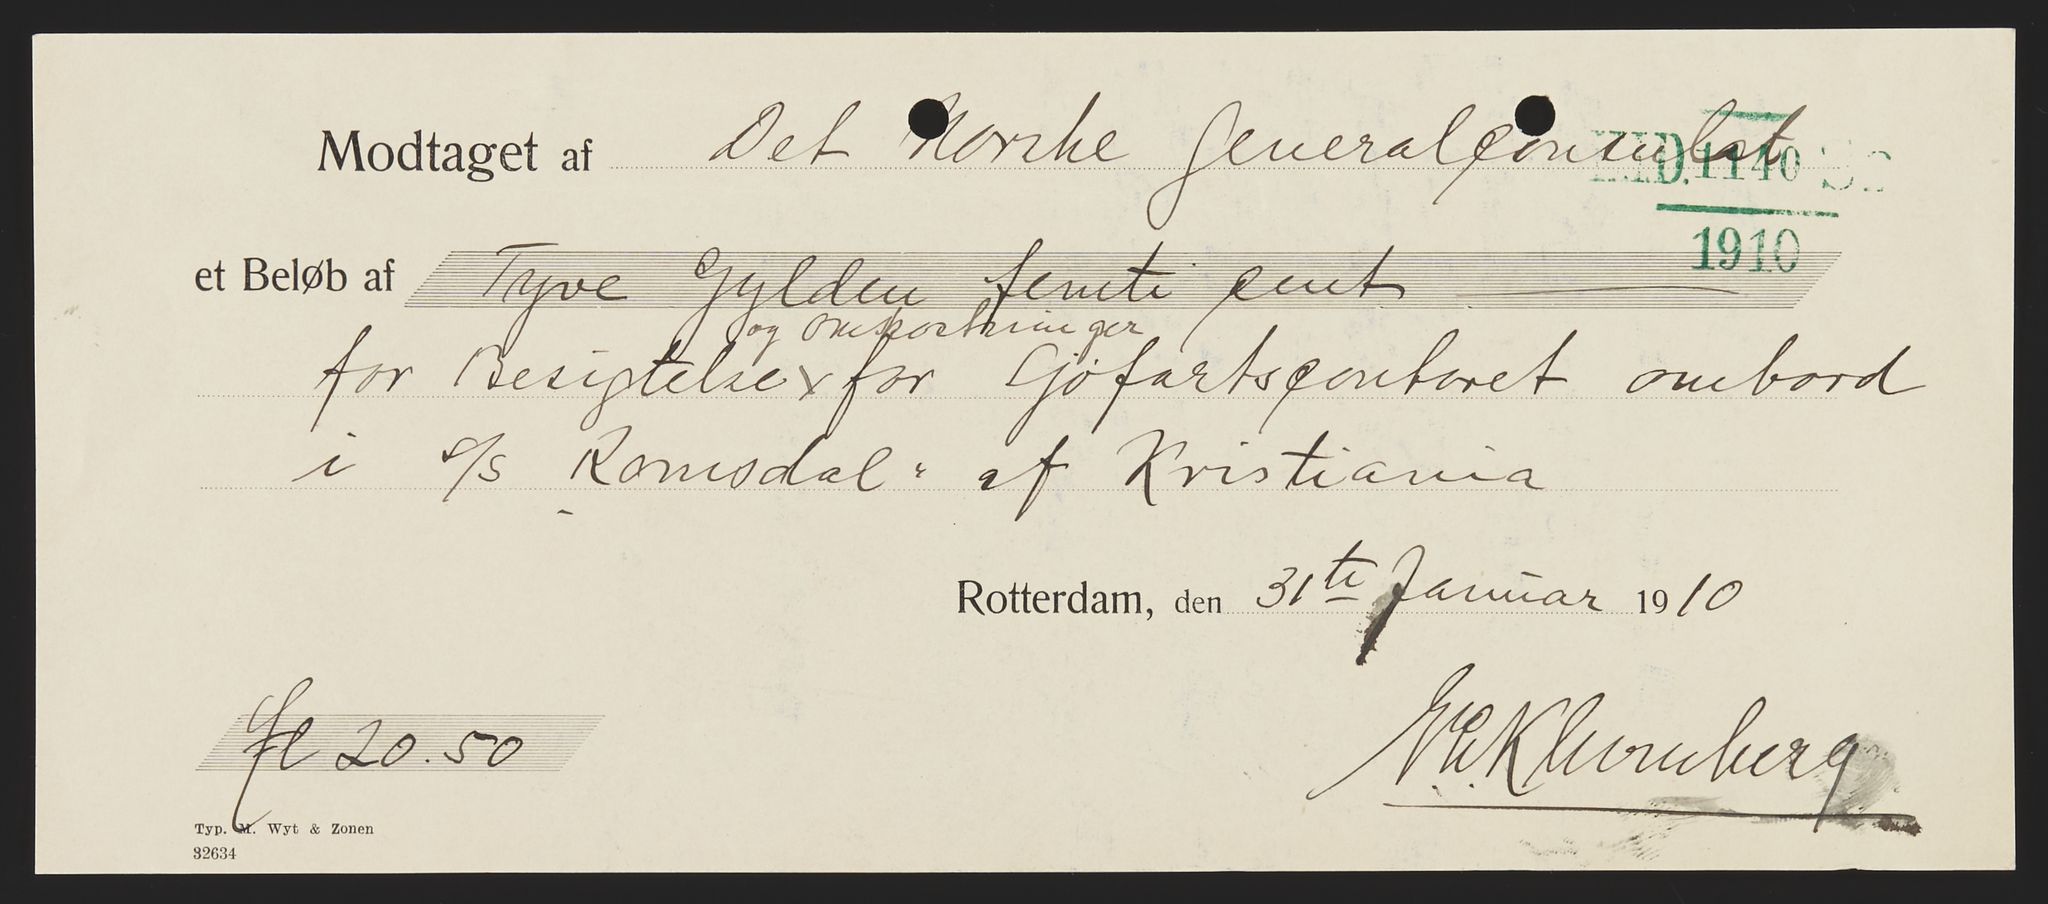 Modtaget af Det Norske Generalconsulat
D. 1140
et Beløb af Tyve Gylden femti cent
1910
og omkostninger
for Besigtelse x for Sjöfartscontoret ombord
i s/s Romsdal " af Kristiania
Rotterdam, den 31te Januar 1910
fl 20.50
Typ. M. Wyt & Zonen
32634